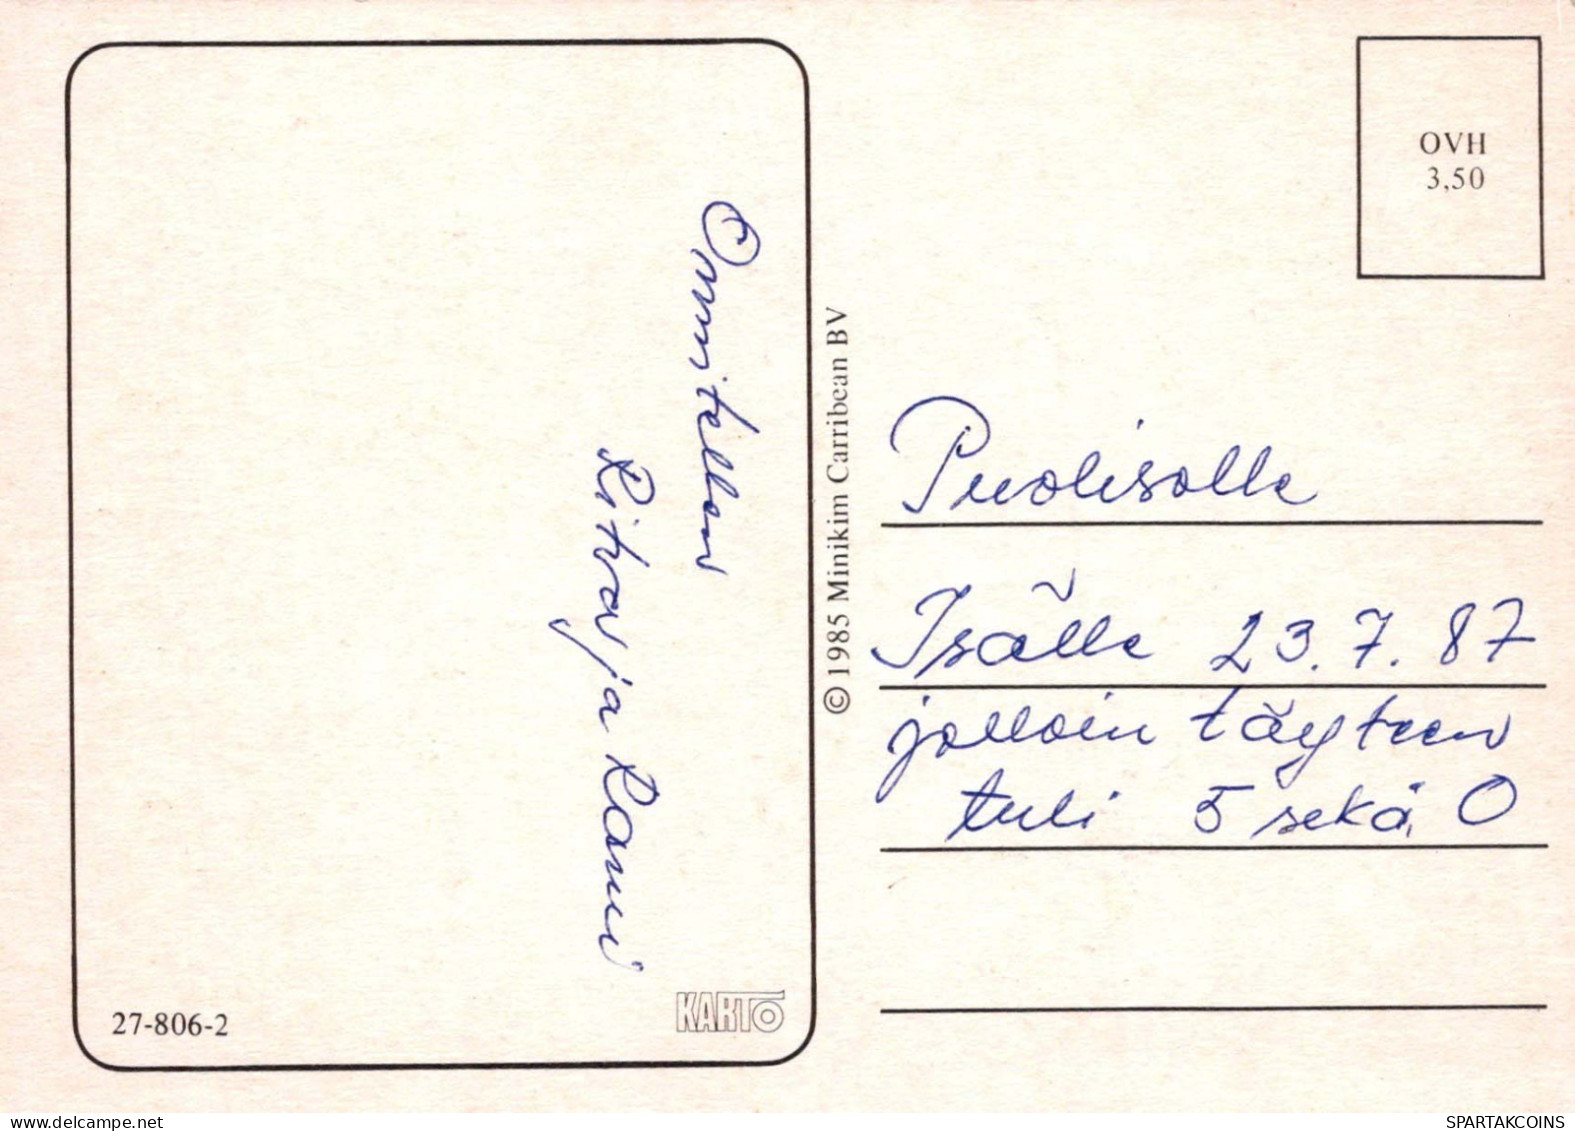 Onnitellen
Ritva ja Rami
27-806-2
KARTO
© 1985 Minikim Carribean BV
OVH
3,50
Puolisolle
Isälle 23.7.87
jolloin täyteen
tuli 5 sekä 0
SPARTAKCOINS